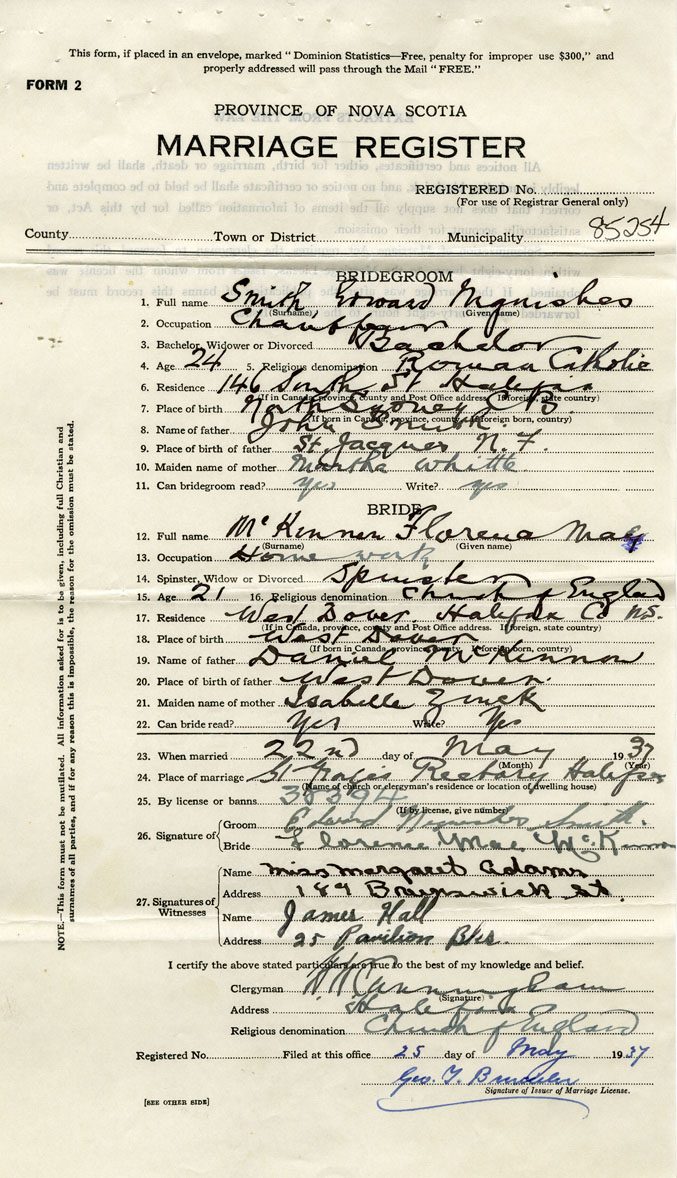 This form, if placed in an envelope, marked "Dominion Statistics—Free, penalty for improper use $300," and
properly addressed will pass through the Mail "FREE."
FORM 2
PROVINCE OF NOVA SCOTIA
MARRIAGE REGISTER
REGISTERED No.
(For use of Registrar General only)
85254
County Town or District Municipality
BRIDEGROOM
1. Full name Smith Edward
(Surname) (Given name)
2. Occupation Chauffeur
3. Bachelor, Widower or Divorced Bachelor
4. Age 24 5. Religious denomination Roman Catholic
6. Residence 146 South St Halifax
(If in Canada, province, county and Post Office address. If foreign, state country)
7. Place of birth North Sydney C.B.
(If born in Canada, province, county, if foreign born, country)
8. Name of father John Smith
9. Place of birth of father St Jacques N. F.
10. Maiden name of mother Martha Whittle
11. Can bridegroom read? yes Write? yes
BRIDE
12. Full name McKinnon Florence Mae
(Surname) (Given name)
13. Occupation Home work
14. Spinster, Widow or Divorced Spinster
15. Age 21 16. Religious denomination Church of England
17. Residence West Dover Halifax Co N.S.
(If in Canada, province, county and Post Office address. If foreign, state country)
18. Place of birth West Dover
(If born in Canada, province, county, if foreign born, country)
19. Name of father Daniel McKinnon
20. Place of birth of father West Dover.
21. Maiden name of mother Isabelle Zinck
22. Can bride read? Yes Write? Yes
23. When married 22nd day of May 1937
(Month) (Year)
24. Place of marriage Rectory Halifax
(Name of church or clergyman's residence or location of dwelling house)
25. By license or banns 38394
(If by license, give number)
26. Signature of
Groom Edward Smith.
Bride Florence Mae McKinnon
27. Signatures of Witnesses
Name Miss Margaret Adams
Address 189 Brunswick St.
Name James Hall
Address 25 Pavilion Bks.
I certify the above stated particulars are true to the best of my knowledge and belief.
Clergyman Cunningham
(Signature)
Address Halifax
Religious denomination Church of England
Registered No. Filed at this office 25 day of May 1937
Geo. T.
Signature of Issuer of Marriage License.
[SEE OTHER SIDE]
NOTE.—This form must not be mutilated. All information asked for is to be given, including full Christian and
surnames of all parties, and if for any reason this is impossible, the reason for the omission must be stated.